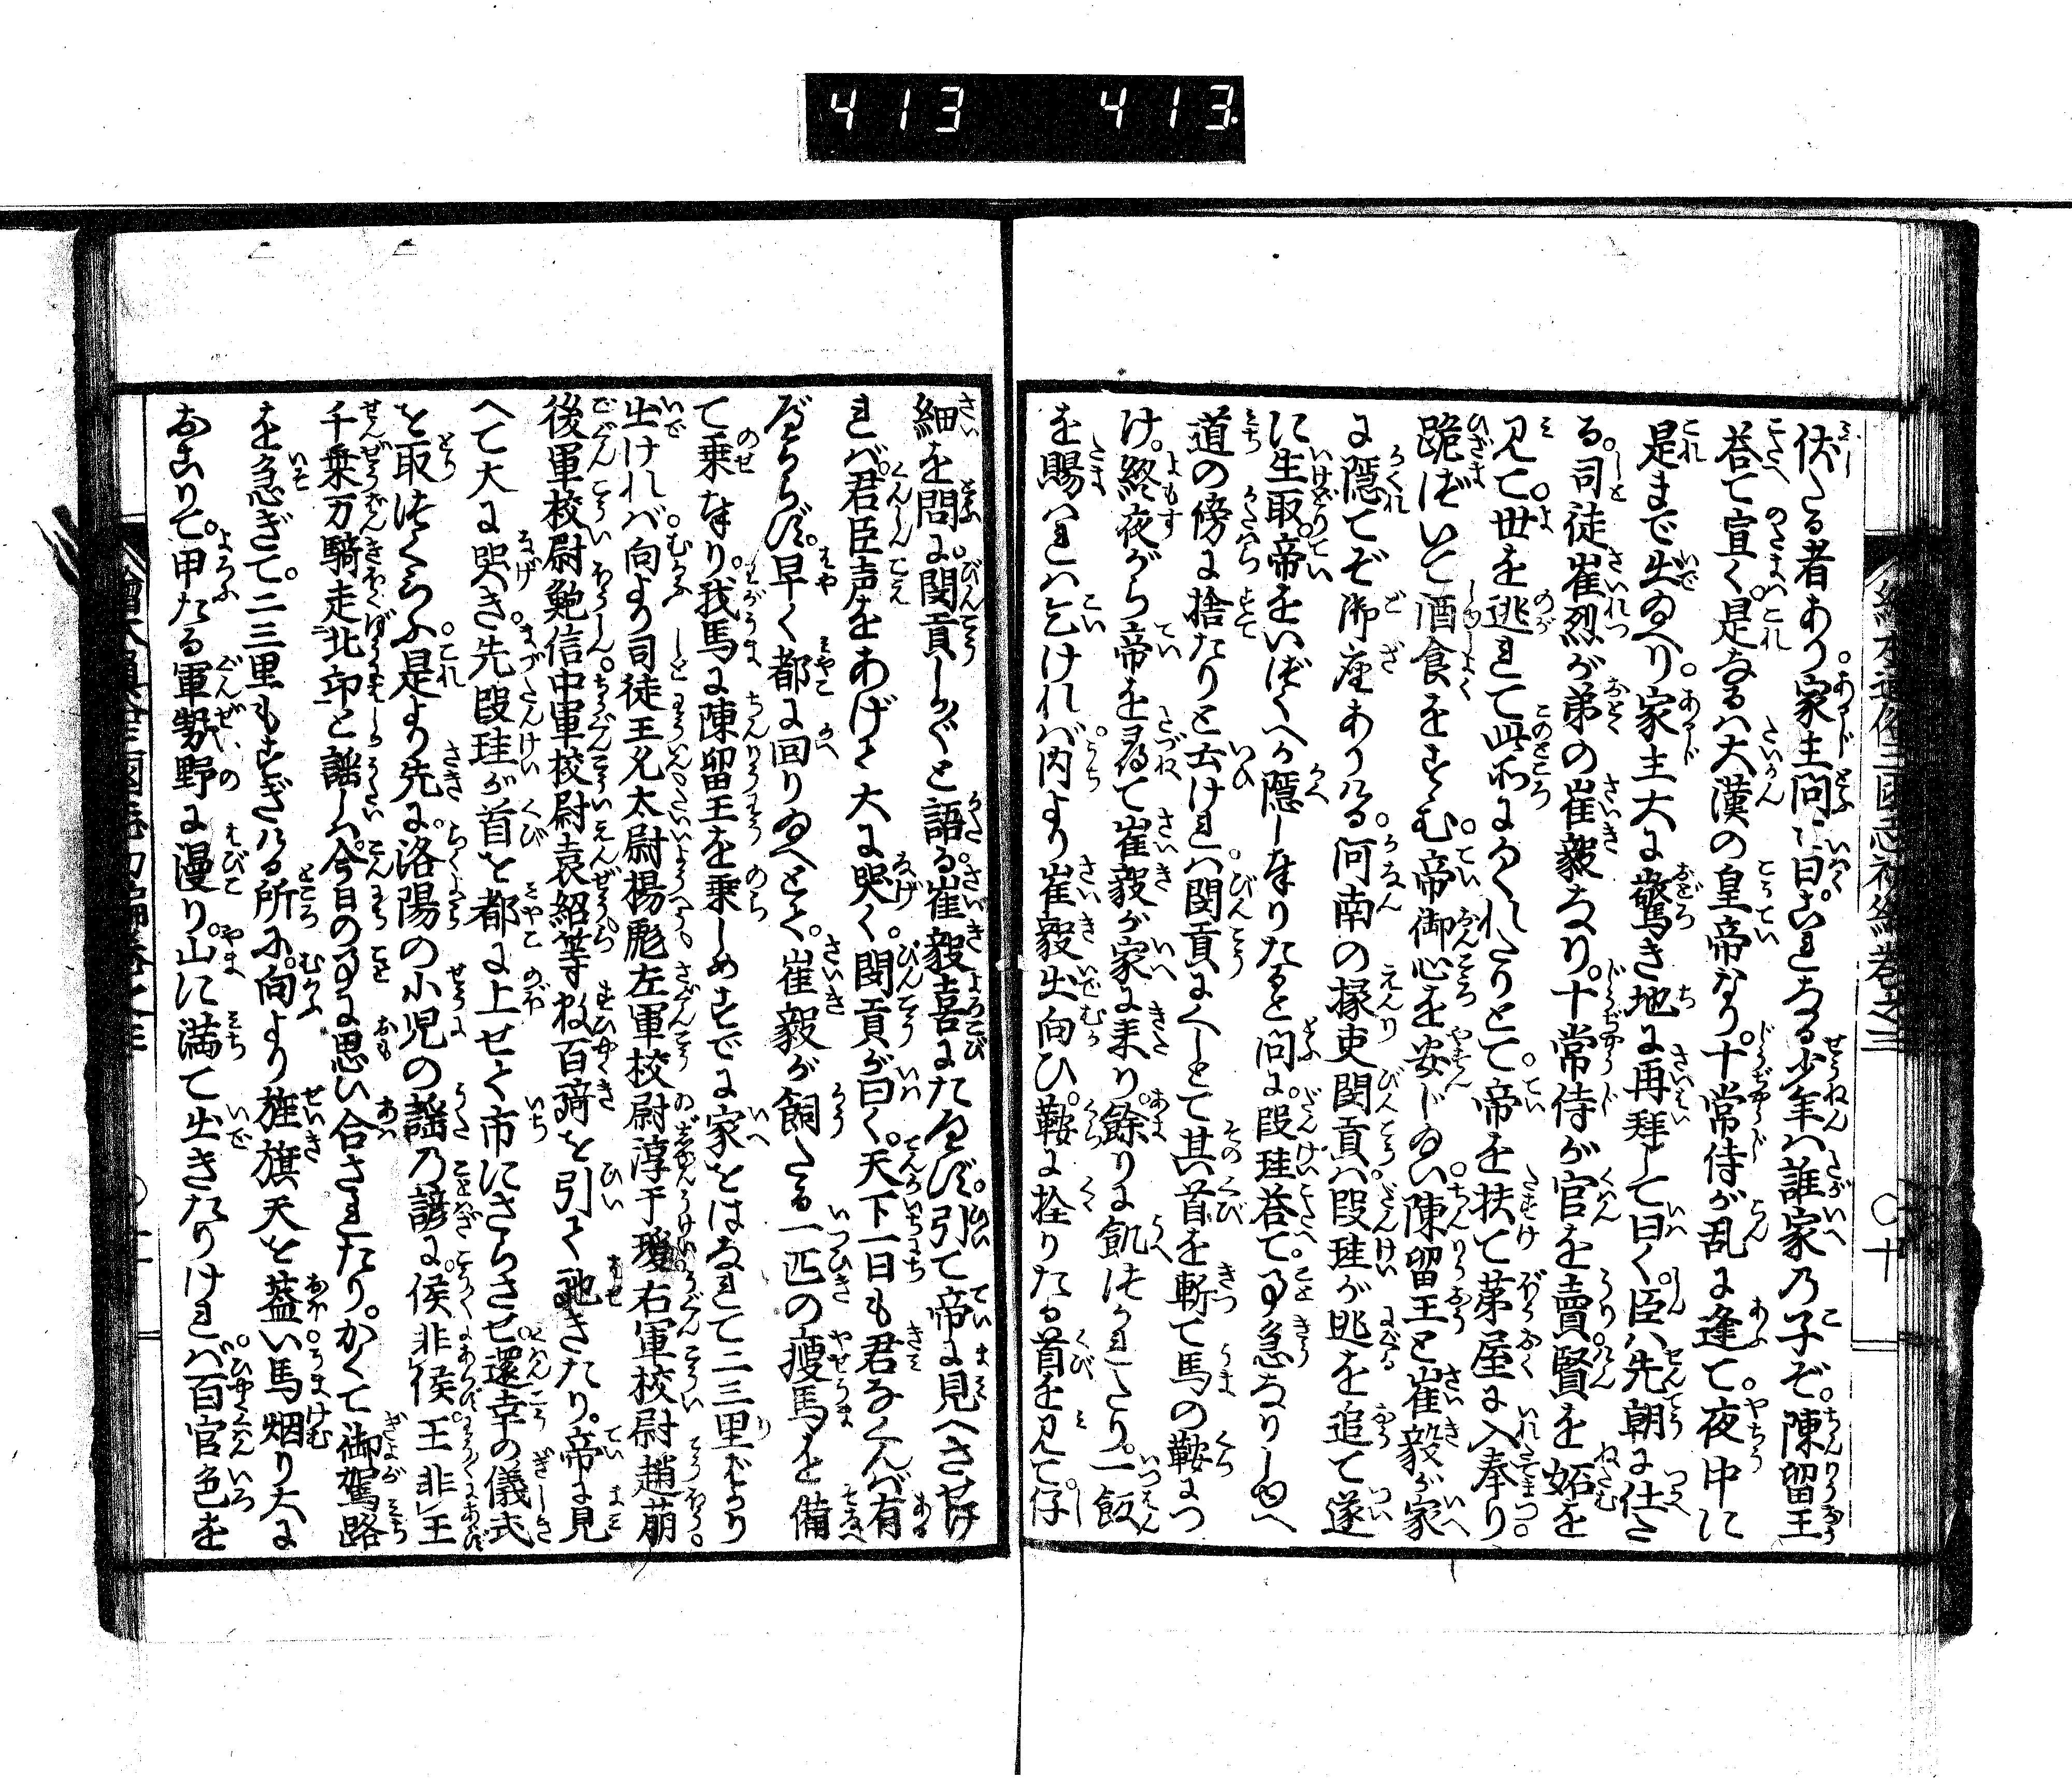 413 413
絵本通俗三国志初編巻之三 〇十
伏たる者あり。家主問て曰。これなる少年ハ誰家の子ぞ。陳留王
荅て宣く。是なるハ大漢の皇帝なり。十常侍が乱に逢て。夜中に
是まで出ゐへり。家主大に驚き地に再拜して曰く。臣ハ先朝に仕さ
る。司徒崔烈が弟の崔毅なり。十常侍が官を賣賢を妬を
見て。世を迯れて此所にかくれたりとて。帝を扶て茅屋に入奉り
跪づいて酒食をすゝむ。帝御心を安じゐい。陳留王と崔毅が家
に隠てぞ御座ありける。河南の掾吏閔貢ハ。段珪が迯を追て遂
に生取。帝をいづくへか隠し奉りたると問に。段珪荅て。事急なりしゆへ
道の傍に捨たりと云けれハ。閔貢にくしとて其首を斬て馬の鞍につ
け。終夜がら帝を尋て崔毅が家に来り。餘りに飢つかれたり。一飯
を賜ハれハと乞けれバ。内より崔毅出向ひ。鞍に拴りたる首を見て。仔
細を問に。閔貢しか〲と語る。崔毅喜にたへず。引て帝に見へさせけ
れバ。君臣声をあげて大に哭く。閔貢が曰く。天下一日も君なくんバ有
べからず。早く都に回りゐへとて。崔毅が飼たる一匹の瘦馬を備
て乗奉り。我馬に陳留王を乗しめすでに家をはなれて二三里ばかり
出けれバ。向より司徒王允。太尉楊彪。左軍校尉淳于瓊。右軍校尉趙萠。
後軍校尉鮑信。中軍校尉袁紹等数百騎を引て馳きたり。帝に見
へて大に哭き。先段珪が首を都に上せて市にさらさせ。還幸の儀式
を取つくろふ。是より先に。洛陽の小児の謡乃諺に。侯非侯。王非王
千乗万騎走北邙と謡しハ。今日の事に思ひ合されたり。かくて御駕路
を急ぎて。二三里もすぎける所に。向より旌旗天を蓋い。馬烟り大に
おこりて。甲たる軍勢野に漫り。山に満て出きたりけれバ。百官色を